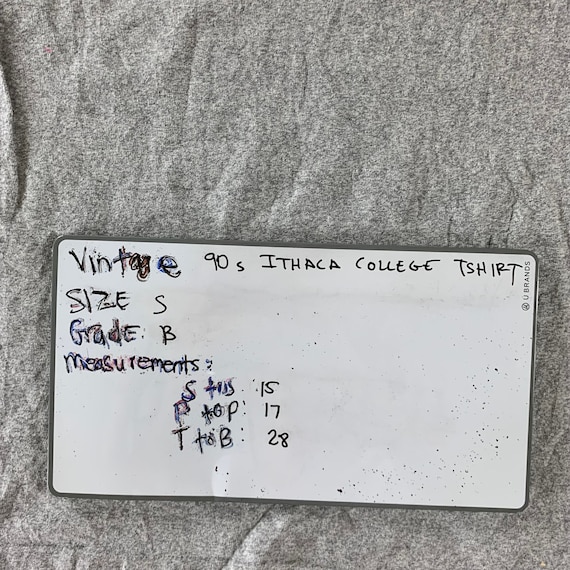 Vintage 90s ITHACA COLLEGE TSHIRT
SIZE S
Grade: B
Measurements:
S to S :15
P to P: 17
T to B: 28
U BRANDS